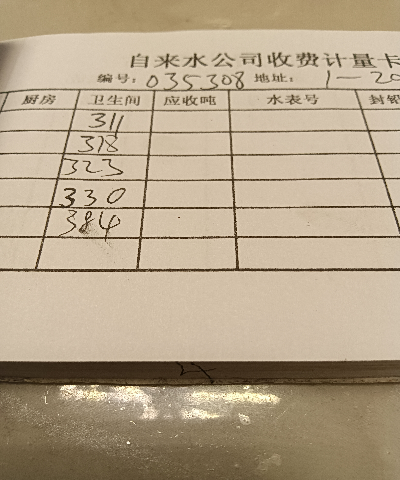 自来水公司收费计量卡
编号：035308 地址：1-20
厨房 卫生间 应收吨 水表号 封铅
311
318
323
330
384